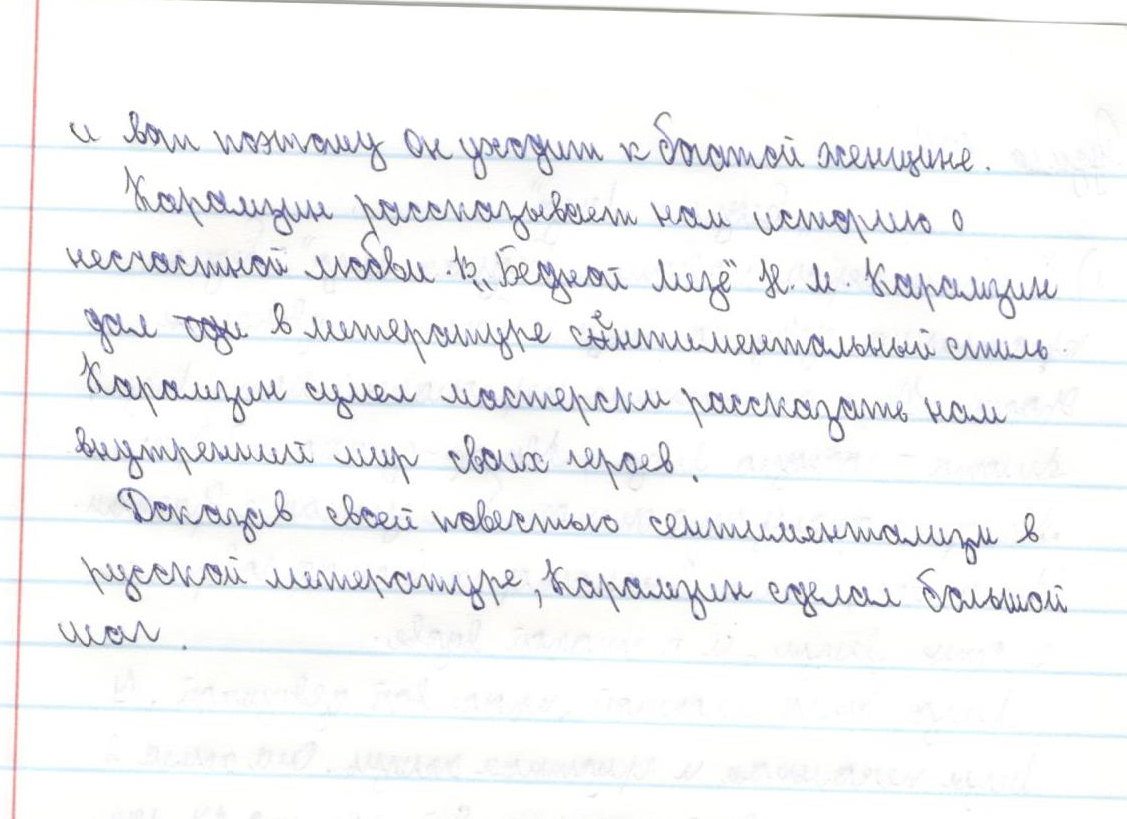 и вот поэтому он уходит к богатой женщине.
Карамзин рассказывает нам историю о
несчастной любви. В „Бедной Лизе" Н. М. Карамзин
дал в литературе сентиментальный стиль.
Карамзин сумел мастерски рассказать нам
внутренний мир своих героев.
Доказав своей повестью сентиментализм в
русской литературе, Карамзин сделал большой
шаг.